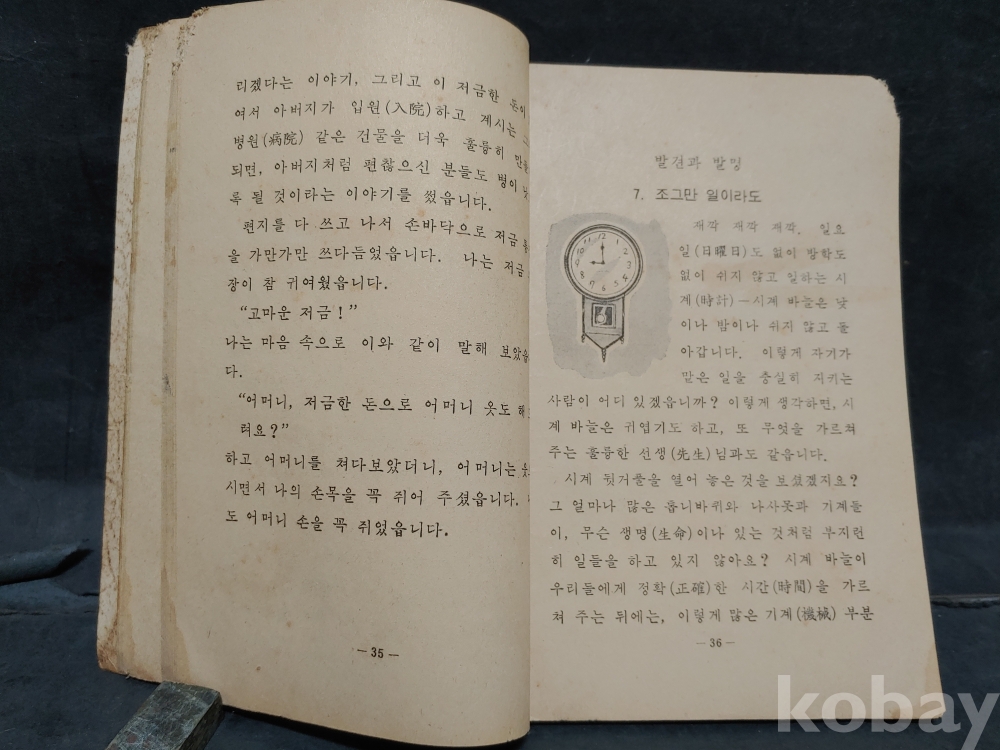 리겠다는 이야기, 그리고 이 저금한 돈이
여서 아버지가 입원(入院)하고 계시는
병원(病院) 같은 건물을 더욱 훌륭히 만들
되면, 아버지처럼 편찮으신 분들도 병이
록 될 것이라는 이야기를 썼읍니다.
편지를 다 쓰고 나서 손바닥으로 저금
을 가만가만 쓰다듬었읍니다. 나는 저금
장이 참 귀여웠읍니다.
“고마운 저금!”
나는 마음 속으로 이와 같이 말해 보았읍
다.
“어머니, 저금한 돈으로 어머니 옷도 해
려요?”
하고 어머니를 쳐다보았더니, 어머니는
시면서 나의 손목을 꼭 쥐어 주셨읍니다.
도 어머니 손을 꼭 쥐었읍니다.
—35—
발견과 발명
7. 조그만 일이라도
재깍 재깍 재깍. 일요
일(日曜日)도 없이 방학도
없이 쉬지 않고 일하는 시
계(時計)—시계 바늘은 낮
이나 밤이나 쉬지 않고 돌
아갑니다. 이렇게 자기가
맡은 일을 충실히 지키는
사람이 어디 있겠읍니까? 이렇게 생각하면, 시
계 바늘은 귀엽기도 하고, 또 무엇을 가르쳐
주는 훌륭한 선생(先生)님과도 같읍니다.
시계 뒷거풀을 열어 놓은 것을 보셨겠지요?
그 얼마나 많은 톱니바퀴와 나사못과 기계들
이, 무슨 생명(生命)이나 있는 것처럼 부지런
히 일들을 하고 있지 않아요? 시계 바늘이
우리들에게 정확(正確)한 시간(時間)을 가르
쳐 주는 뒤에는, 이렇게 많은 기계(機械) 부분
—36—
kobay